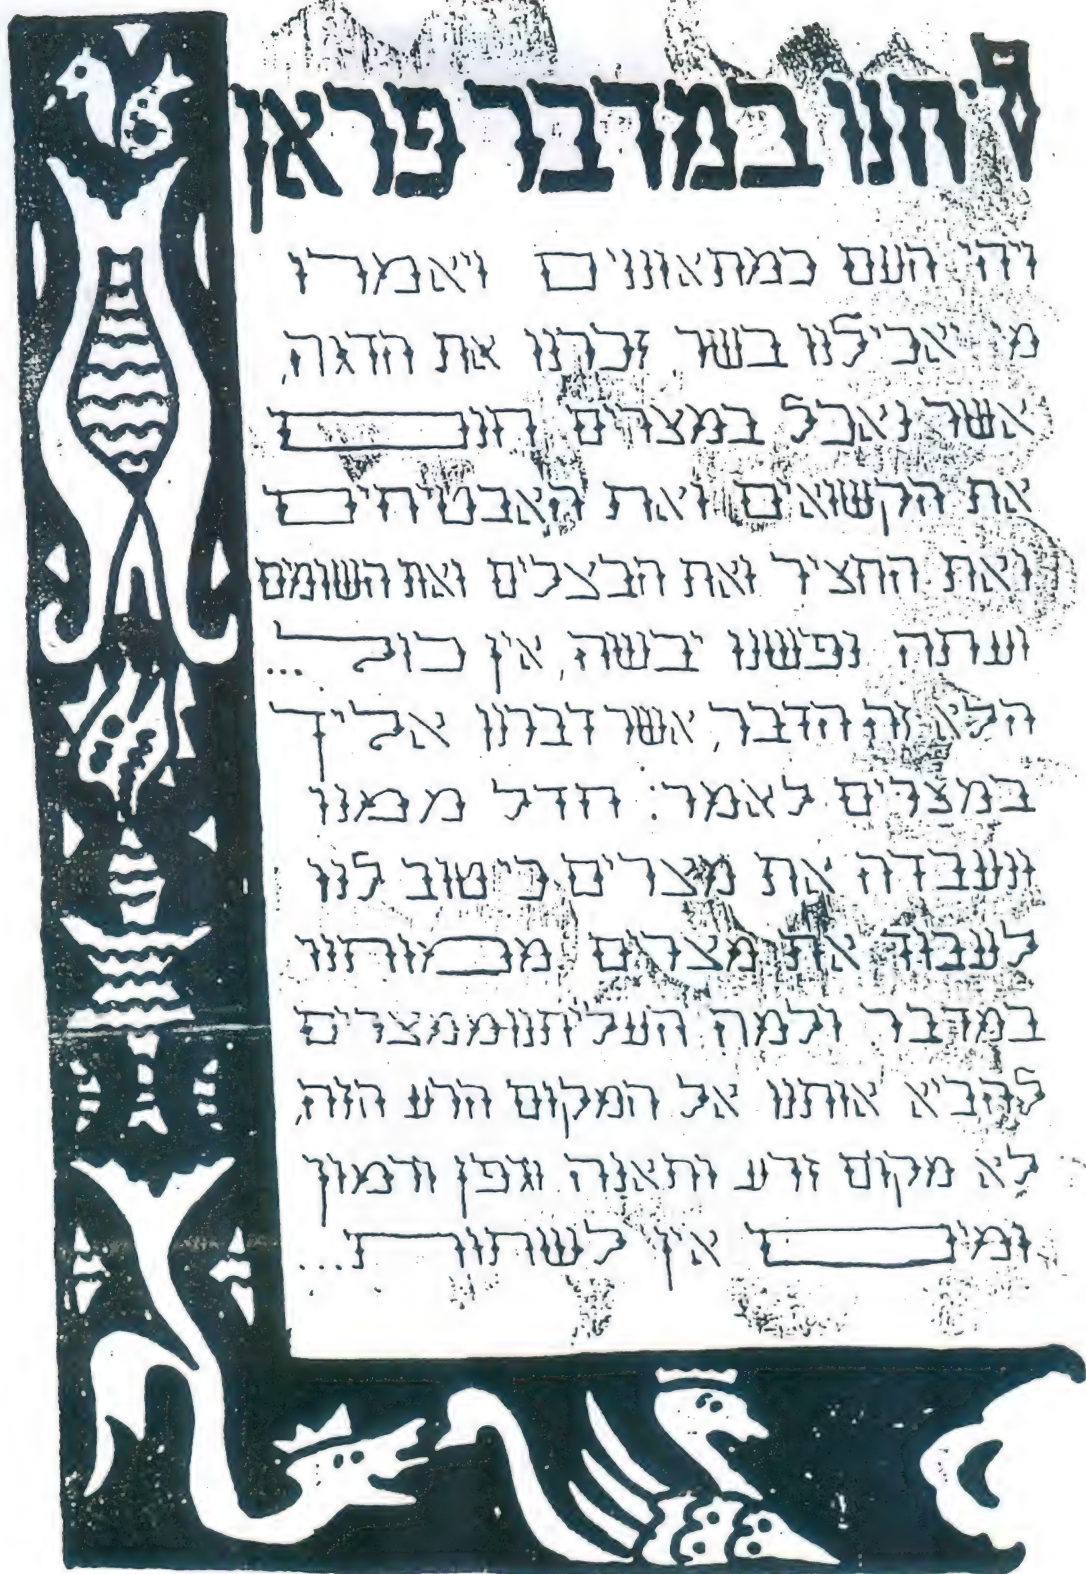 ויחנו במדבר פראן
ויהי העם כמתאוננים ויאמרו
מי יאכילנו בשר זכרנו את הדגה,
אשר נאכל במצרים חנם
את הקשואים ואת האבטיחים
ואת החציר ואת הבצלים ואת השומים
ועתה נפשנו יבשה, אין כול...
הלא זה הדבר, אשר דברנו אליך
במצרים לאמר: חדל ממנו
ונעבדה את מצרים כי טוב לנו
לעבוד את מצרים ממותנו
במדבר ולמה העליתנו ממצרים
להביא אותנו אל המקום הרע הזה,
לא מקום זרע ותאנה וגפן ורמון
ומים אין לשתות...